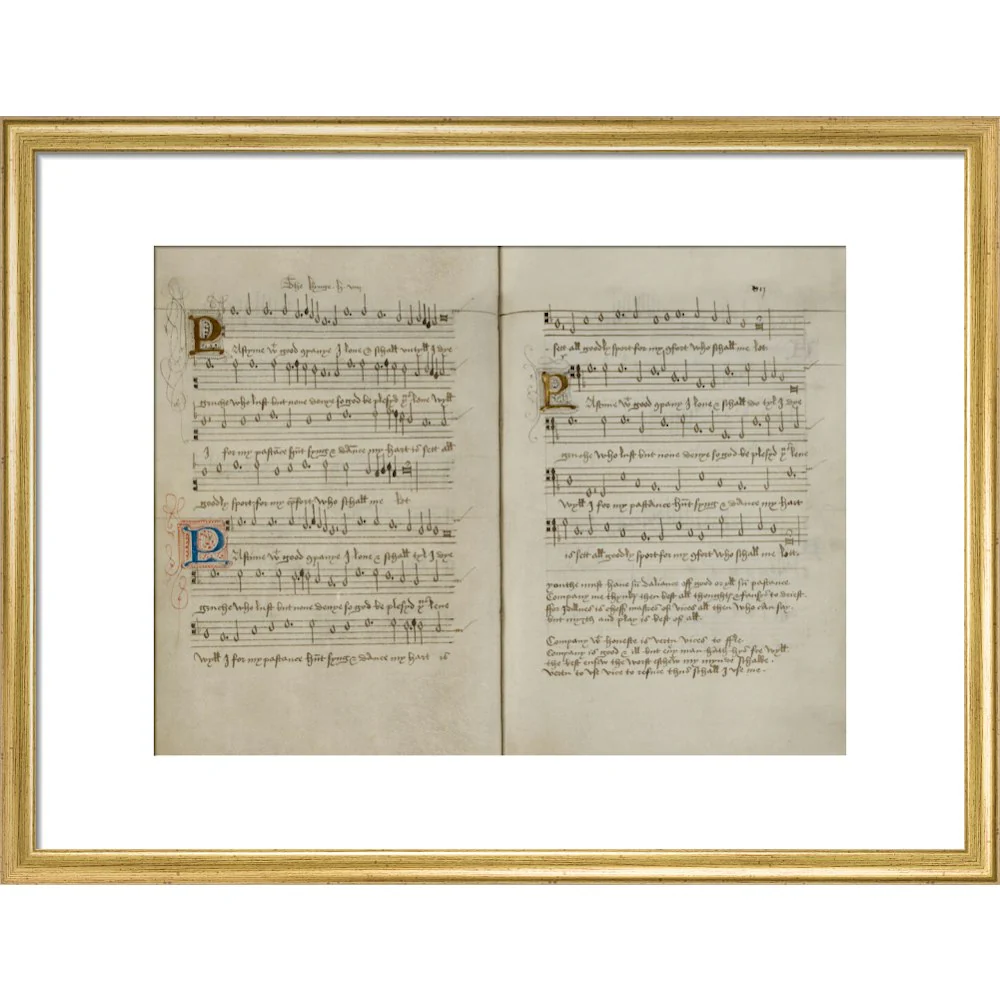 The kynge h viij
PAstyme wt good 9panye I loue & schall vntyll I dye
gruche who lust but none denye so god be plesyd yus leue wyll
I for my pastāce hūt syng & dāce my hart is sett all
goodly sport for my 9fort who schall me let
PAstyme wt good 9panye I loue & schall tyl I dye
gruche who lust but none denye so god be plesyd yus leue
wyll I for my pastance hūt syng & dance my hart is
sett all goodly sport for my 9fort who schall me let
PAstyme wt good 9pany I loue & schall do tyl I dye
gruche who lust but none denye so god be plesyd yus leue
wyll I for my pastance hūt syng & dance my hart
is sett all goodly sport for my 9fort who schall me lett.
youthe must haue sū daliance off good or yll sū pastance
Company me thynks then best all thoughts & fansys to deiest.
ffor Idillnes is cheff mastres of vices all then who can say.
but myrth and play is best of all.
Company wt honeste is vertu vices to ffle.
Company is good & ill but euy man hath hys fre wyll
the best ensew the worst eschew my mynde schalbe.
vertu to vse vice to refuce thus schall I vse me.